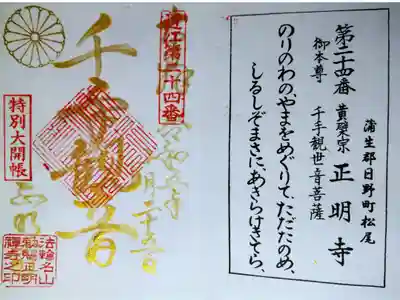 蒲生郡日野町松尾
第二十四番 黄檗宗 正明寺
御本尊 千手観世音菩薩
のりのわの、やまをめぐりて、ただたのめ、
しるしぞまさに、あきらけきてら、
近江第二十四番
千手観音
特別大開帳
正明
法輪名山
勅賜正明
禅寺之印